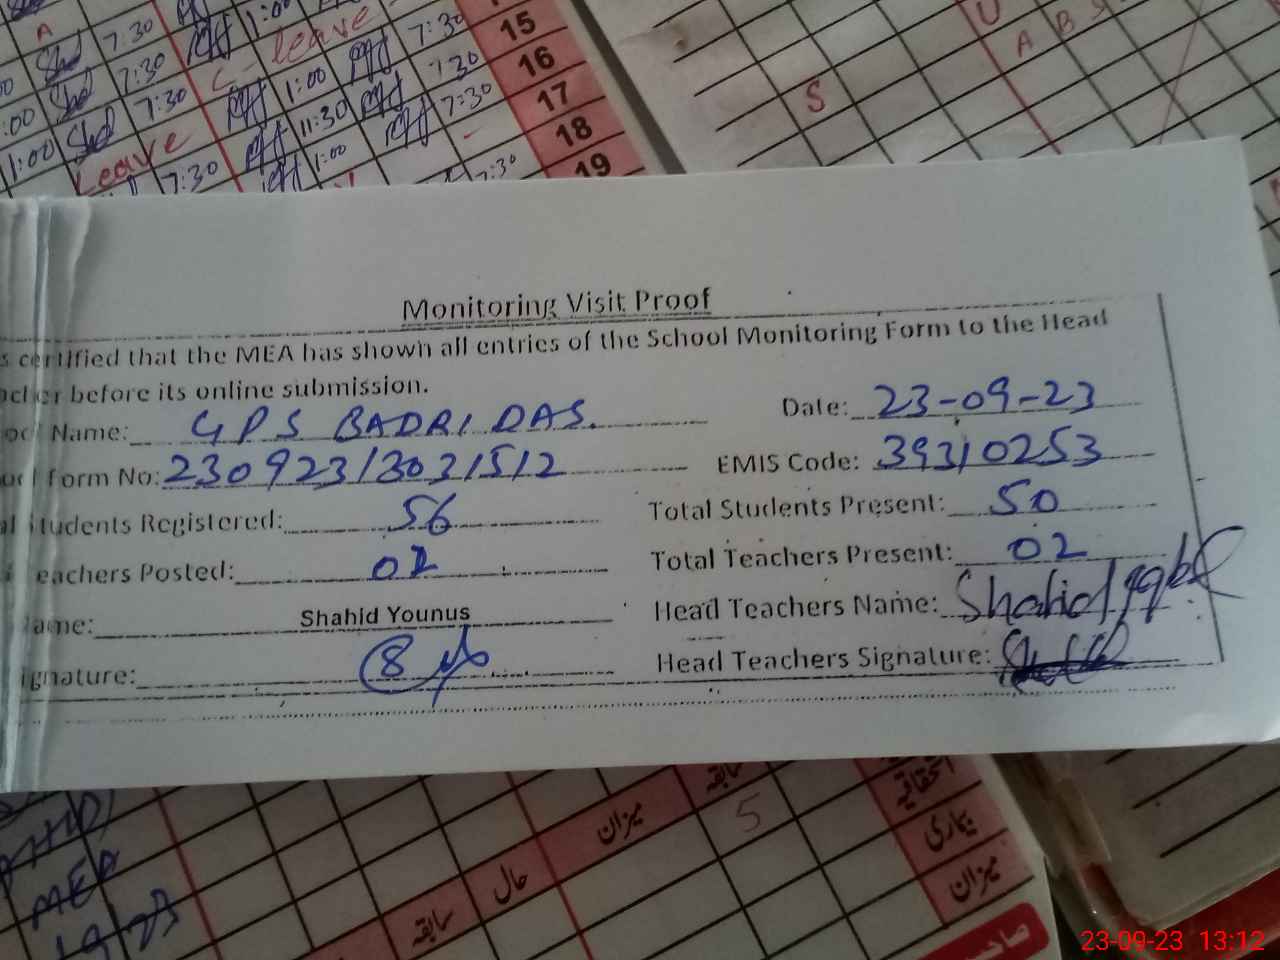 A 7:30 1:00 7:30 15
:00 7:30 C-leave 7:30 16
:00 7:30 1:00 7:30 17
11:00 7:30 11:30 7:30 18
Leave 7:30 1:00 7:30 19
U
A B S
S
Monitoring Visit Proof
s certified that the MEA has shown all entries of the School Monitoring Form to the Head
cher before its online submission.
Name: GPS BADRI DAS. Date: 23-09-23
form No: 230923/3031512 EMIS Code: 39310253
Students Registered: 56 Total Students Present: 50
eachers Posted: 02 Total Teachers Present: 02
ame: Shahid Younus Head Teachers Name: Shahid Iqbal
ignature: Head Teachers Signature:
سابقہ
5
میزان
حال
سابقہ
بیماری
میزان
MEA
23-09-23 13:12